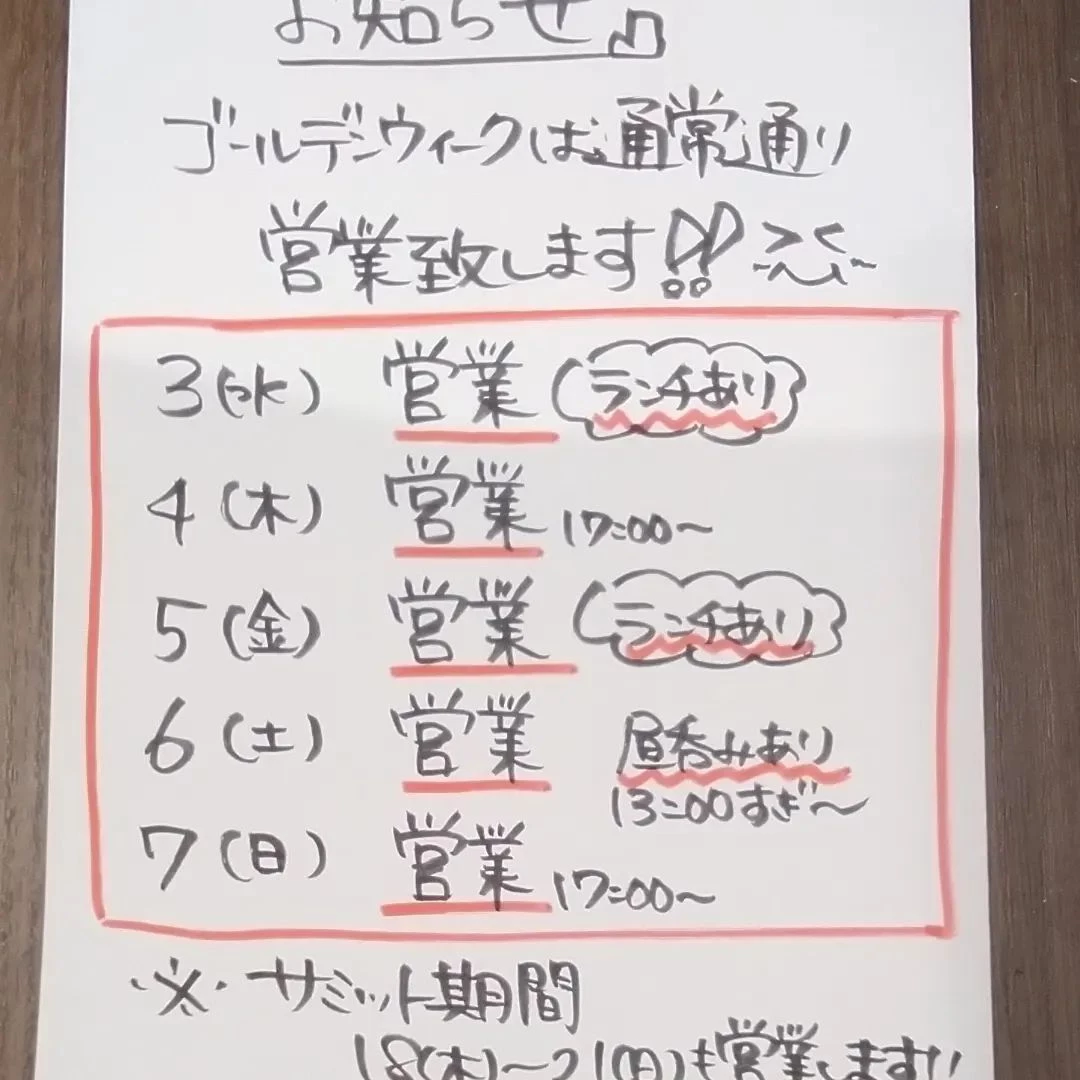 お知らせ♫
ゴールデンウィークは、通常通り
営業致します!!
3(水) 営業 ランチあり
4(木) 営業 17:00〜
5(金) 営業 ランチあり
6(土) 営業 昼呑みあり
13:00すぎ〜
7(日) 営業 17:00〜
※サミット期間
18(木)〜21(日)も営業します!!